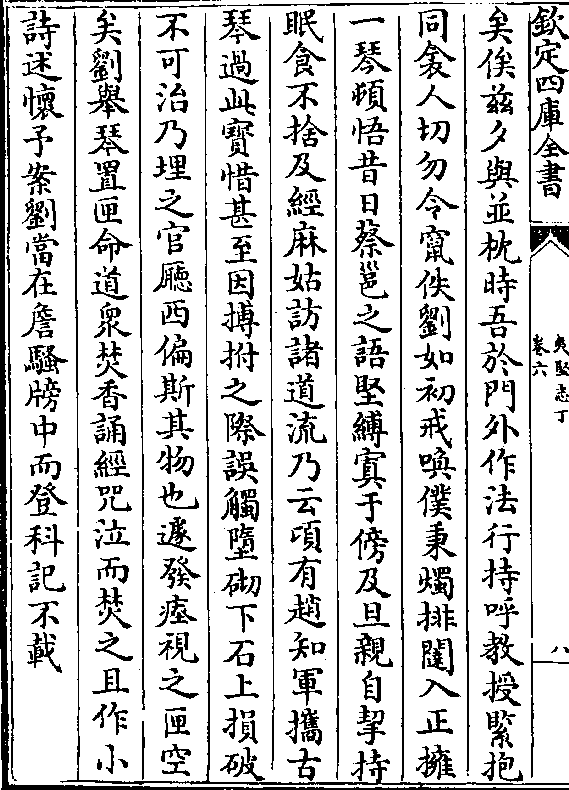 欽定四庫全書
夷堅志丁
卷六
八
矣俟兹夕與並枕時吾於門外作法行持呼教授緊抱
同衾人切勿令竄佚劉如初戒喚僕秉燭排闥入正擁
一琴頓悟昔日蔡邕之語堅縛寘于傍及旦親自挈持
眠食不捨及經麻姑訪諸道流乃云項有趙知軍攜古
琴過此寳惜甚至因搏拊之際誤觸墮砌下石上損破
不可治乃埋之官廳西偏斯其物也遽發瘞視之匣空
矣劉舉琴置匣命道衆焚香誦經咒泣而焚之且作小
詩述懷予案劉當在詹騤牓中而登科記不載